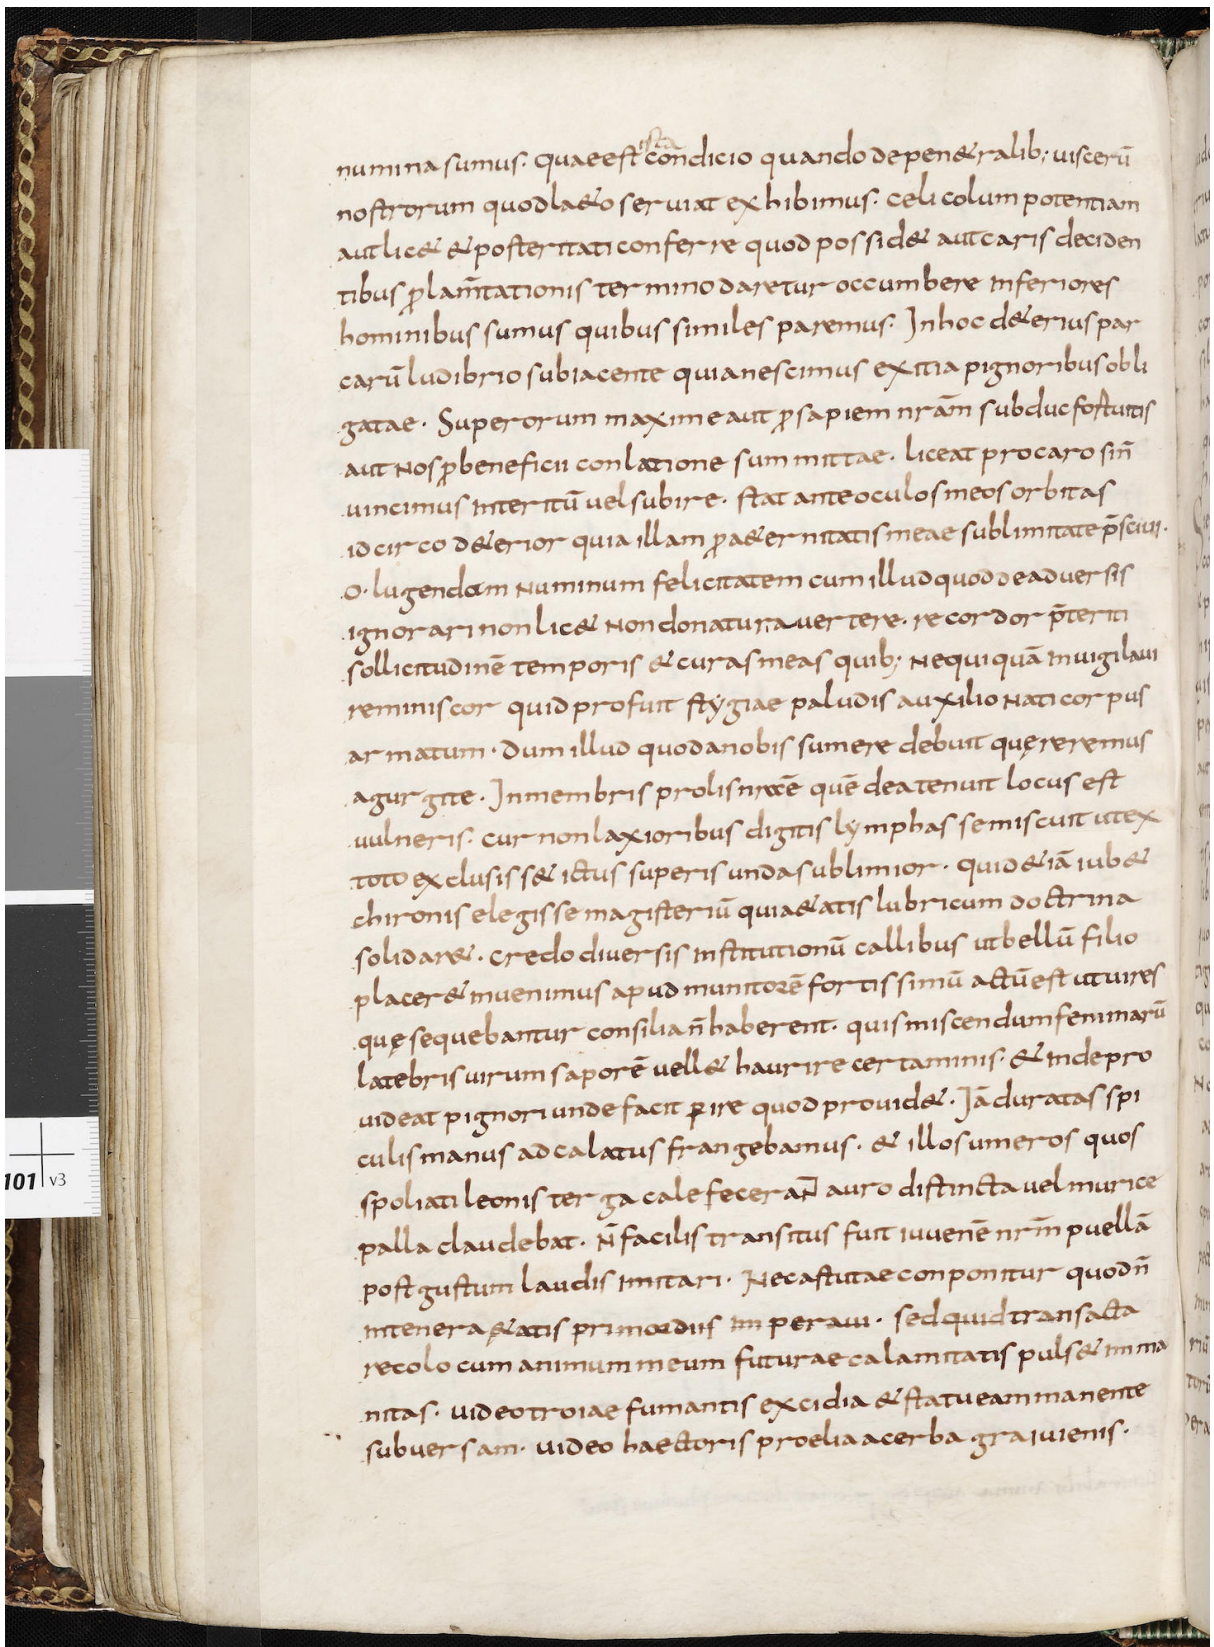 numina sumus. quae est ista condicio quando de pen&ralib; uiscerū
nostrorum quod la&o seruiat exhibimus. celicolum potentiam
aut lic& & posteritati conferre quod possid& aut caris deciden
tibus p̱ lam̄tationis termino daretur occumbere inferiores
hominibus sumus quibus similes paremus. In hoc d&erius par
carū ludibrio subiacente quia nescimus exitia pignoribus obli
gatae. Superorum maxime aut p̱sapiem nrām subduc fortuitis
aut nos p̱ beneficii conlatione summittae. liceat pro caro sin̄
uincimus interitū uel subire. stat ante oculos meos orbitas
idcirco d&erior quia illam p̱ a&ernitatis meae sublimitate p̄sciui.
O. lugendam numinum felicitatem cum illud quod de aduersis
ignorari non lic& non donatur auertere. recordor p̄teriti
sollicitudinē temporis & curas meas quib; nequiquā inuigilaui
reminiscor quid profuit stygiae paludis auxilio nati corpus
armatum. dum illud quod a nobis sumere debuit quęreremus
a gurgite. In membris prolis nrae quē dea tenuit locus est
uulneris. cur non laxioribus digitis lymphas se miscuit ut ex
toto exclusiss& ictus superis unda sublimior. quid & iā iub&
chironis elegisse magisteriū quia &atis lubricum doctrina
solidar&. credo diuersis institutionū callibus ut bellū filio
placer& inuenimus apud munitorē fortissimū actū est ut uires
quę sequebantur consilia n̄ haberent. quis miscendum feminarū
latebris uirum saporē uell& haurire certaminis. & inde pro
uideat pignori unde facit p̱ire quod prouid&. Iā duratas spi
culis manus ad calatus frangebamus. & illos umeros quos
spoliati leonis terga calefeceraN̄ auro distincta uel murice
palla claudebat. N̄ facilis transitus fuit iuuenē nrm̄ puellā
post gustum laudis imitari. Nec astutae conponitur quod n̄
in tenera &atis primordiis imperaui. sed quid transacta
recolo cum animum meum futurae calamitatis puls& inma
nitas. uideo troiae fumantis excidia & statueam manente
subuersam. uideo haectoris proelia acerba graiuienis.